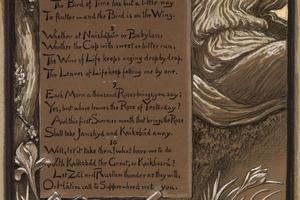 The Bird of Time has but a little way
To flutter—and the Bird is on the Wing.
Whether at Naishápúr or Babylon,
Whether the Cup with sweet or bitter run,
The Wine of Life keeps oozing drop by drop,
The Leaves of Life keep falling one by one.
9
Each Morn a thousand Roses brings, you say:
Yes, but where leaves the Rose of Yesterday?
And this first Summer month that brings the Rose
Shall take Jamshyd and Kaikobád away.
10
Well, let it take them! what have we to do
With Kaikobád the Great, or Kaikhosrú?
Let Zál and Rustum thunder as they will,
Or Hátim call to Supper—heed not you.